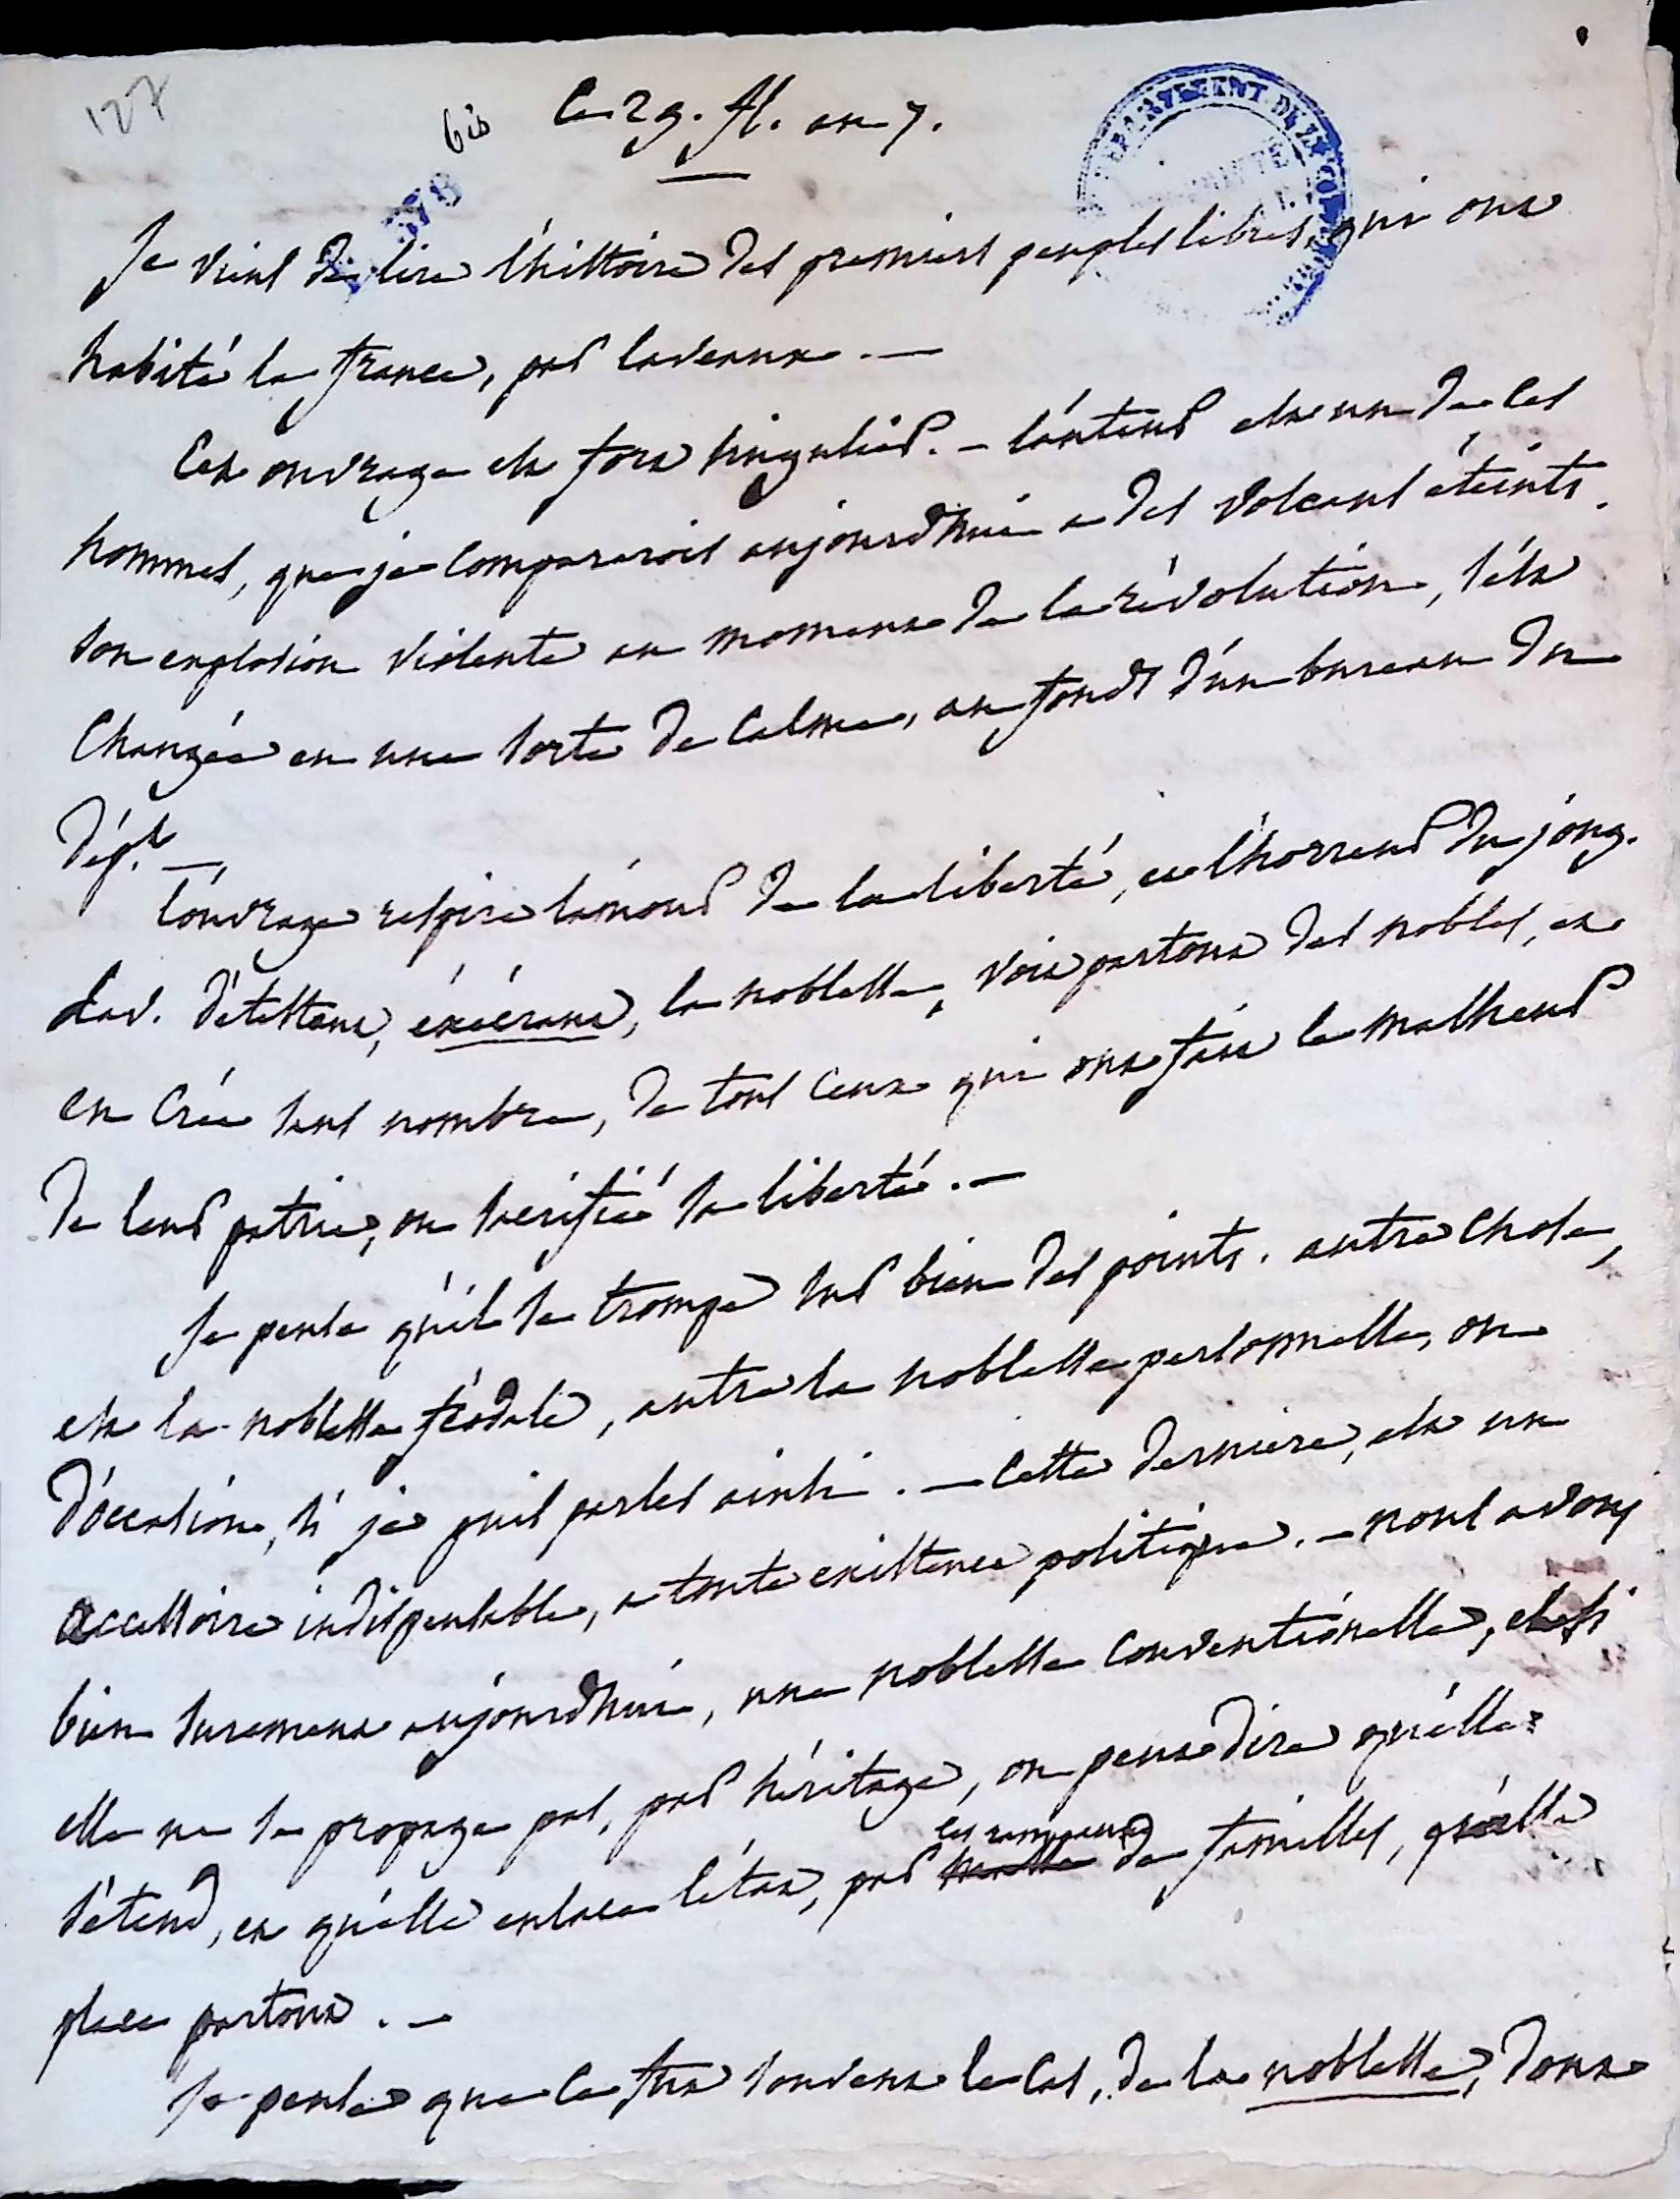 127
bis
Ce 29. fl. an 7.
578
DEPARTEMENT DE
Je viens de lire l'histoire des premiers peuples libres, qui ont
habité la france, par laveaux. —
Cet ouvrage est fort singulier. — l'auteur est un de ces
hommes, que je comparerois aujourdhui a des volcans éteints.
son explosion violente au moment de la révolution, s'est
changée en une sorte de calme, au fonds d'un bureau du
dépt. —
l'ouvrage respire l'amour de la liberté, et l'horreur du joug.
Lav. détestant, éxécrant, la noblesse, voit partout des nobles, et
en crée sans nombre, de tous ceux qui ont fait le malheur
de leur patrie, ou sacrifié sa liberté. —
Je pense qu'il se trompe sur bien des points. autre chose,
est la noblesse féodale, autre la noblesse personnelle, ou
d'occasion, si je puis parler ainsi. — Cette derniere, est un
accessoire indispensable, a toute existence politique. — nous avons
bien surement aujourdhui, une noblesse conventionelle, et si
elle ne se propage pas, par héritage, on peut dire qu'elle
s'étend, et qu'elle enlace l'état, par
les rameaux
de familles, qu'elle
place partout. —
Je pense que ce fut souvent le cas, de la noblesse, dont